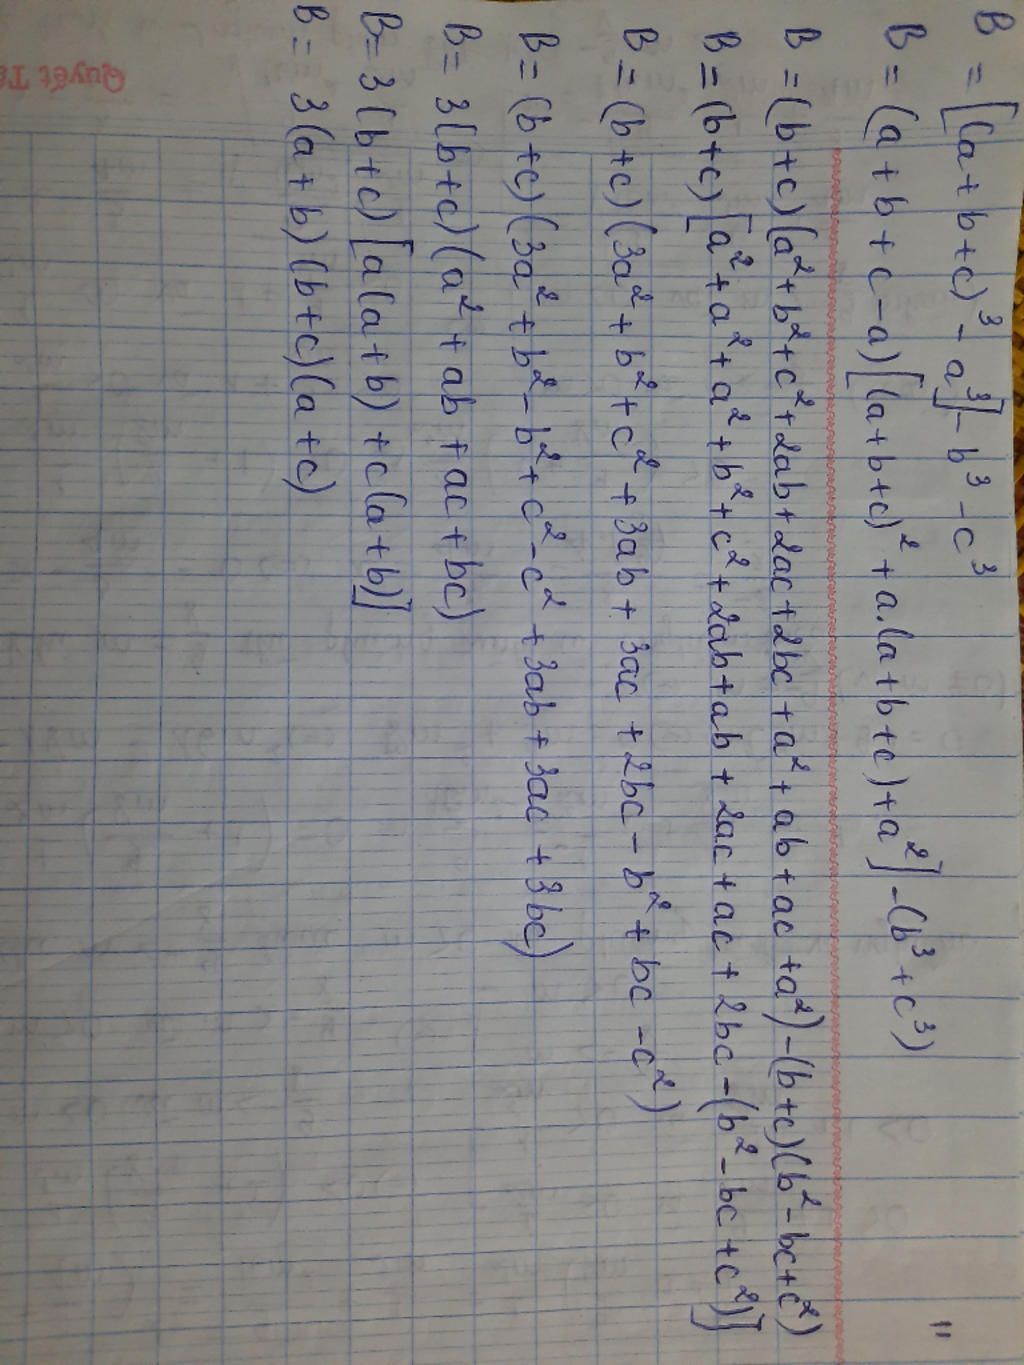 B = [(a+b+c)³ - a³] - b³ - c³
B = (a+b+c-a)[(a+b+c)² + a.(a+b+c)+a²] -(b³+c³)
B = (b+c)(a²+b²+c²+2ab+2ac+2bc+a²+ab+ac+a²)-(b+c)(b²-bc+c²)
B = (b+c)[a²+a²+a²+b²+c²+2ab+ab+2ac+ac+2bc-(b²-bc+c²)]
B = (b+c)(3a²+b²+c²+3ab+3ac+2bc-b²+bc-c²)
B = (b+c)(3a²+b²-b²+c²-c²+3ab+3ac+3bc)
B = 3(b+c)(a²+ab+ac+bc)
B = 3(b+c)[a(a+b)+c(a+b)]
B = 3(a+b)(b+c)(a+c)
Quyết T